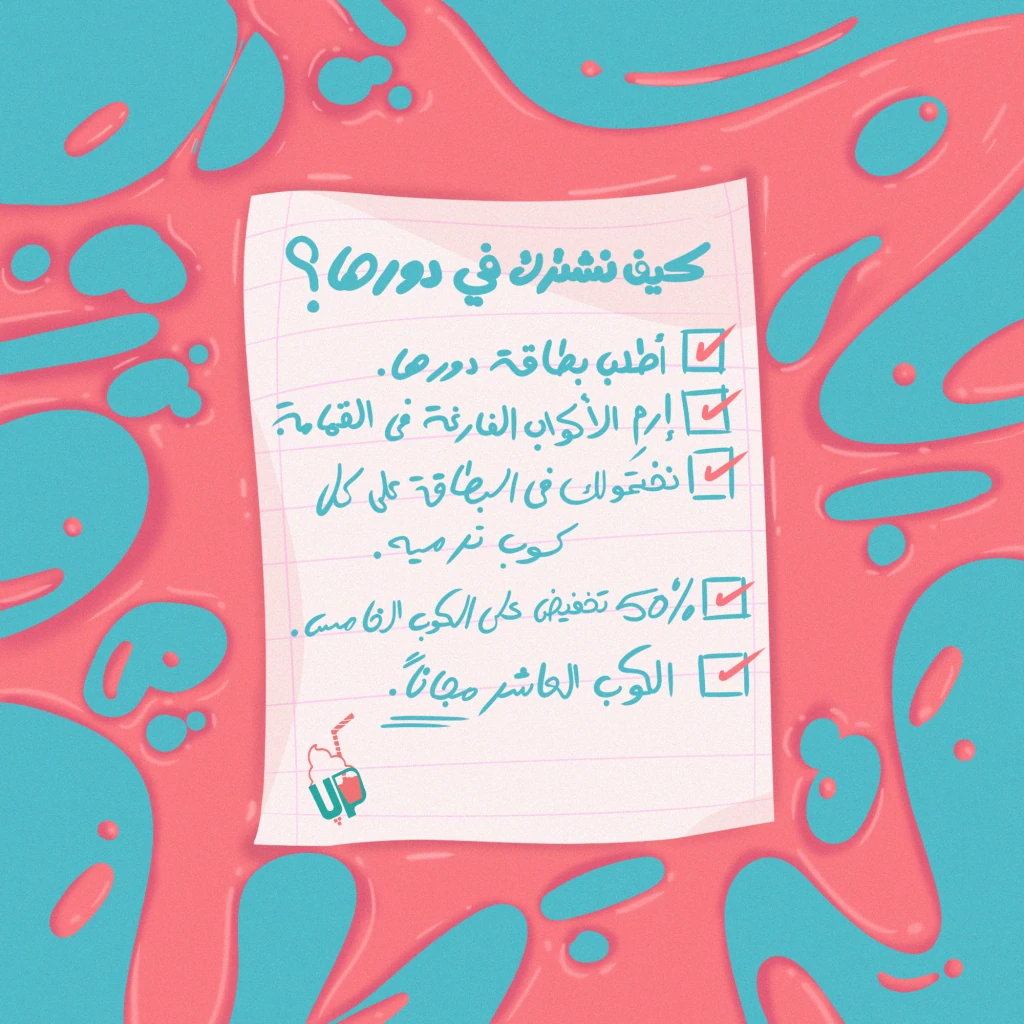 كيف نشترك في دورها؟
أطلب بطاقة دورها.
إرمِ الأكواب الفارغة في القمامة
نختمولك في البطاقة على كل
كوب ترميه.
50% تخفيض على الكوب الخامس.
الكوب العاشر مجاناً.
UP